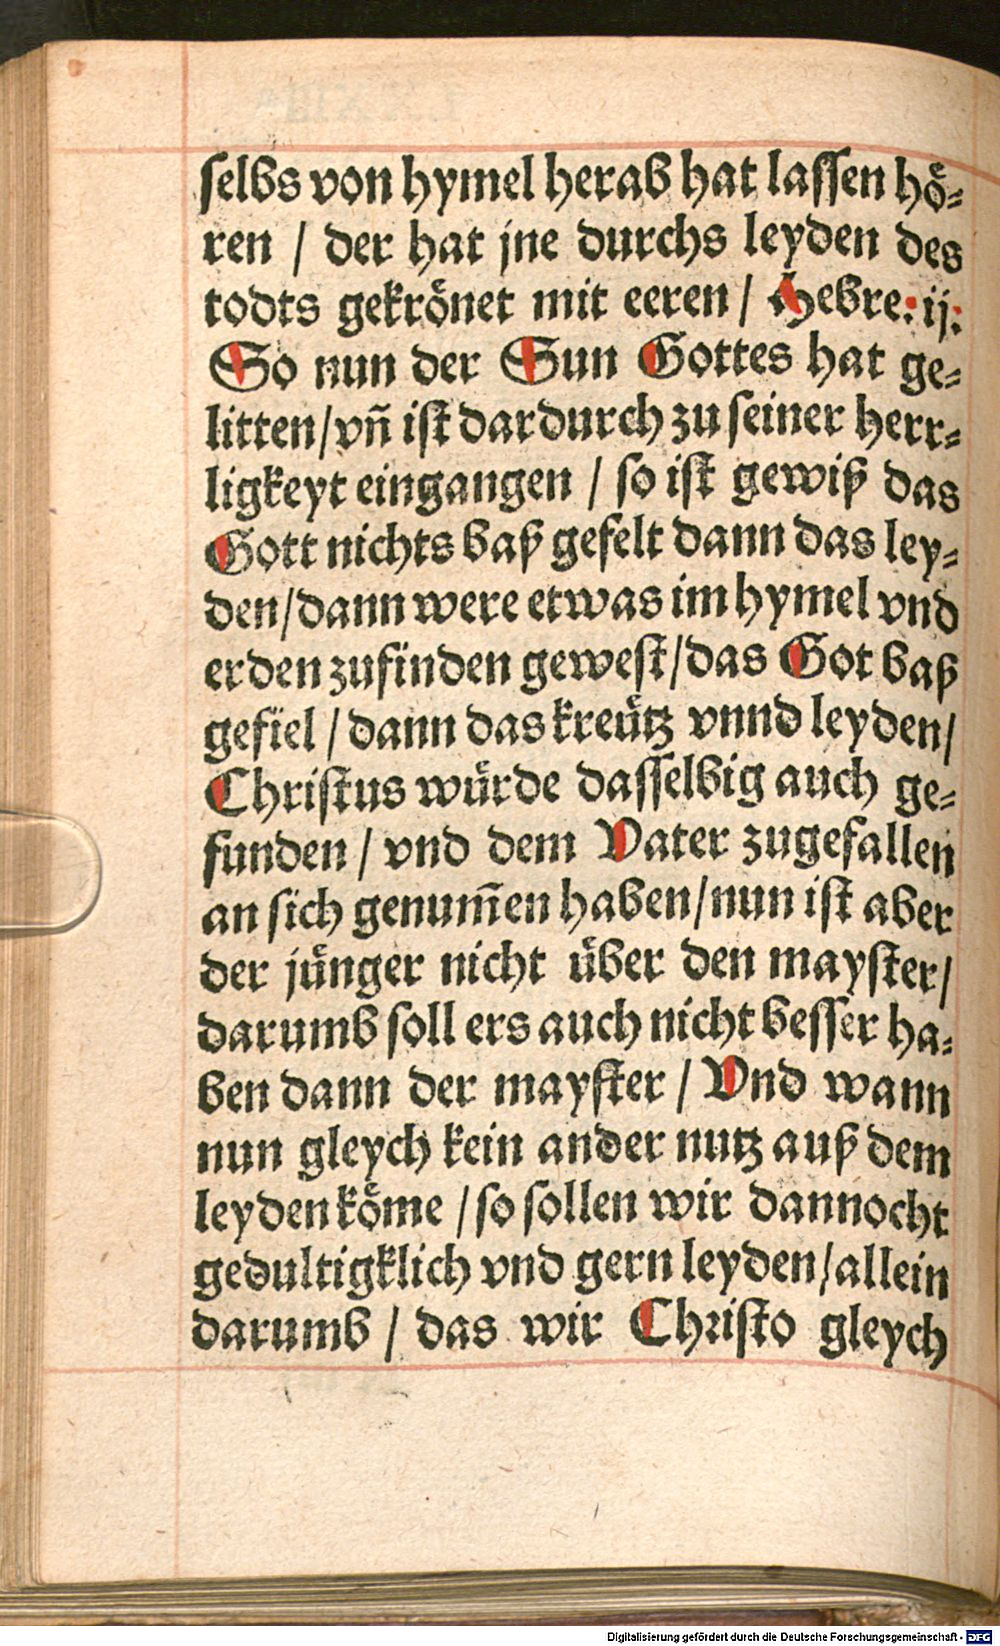 selbs von hymel herab hat lassen hö-
ren / der hat jne durchs leyden des
todts gekrönet mit eeren / Hebre: ij:
So nun der Sun Gottes hat ge-
litten/vñ ist dardurch zu seiner herr-
ligkeyt eingangen / so ist gewiß das
Gott nichts baß gefelt dann das ley-
den/dann were etwas im hymel vnd
erden zufinden gewest/das Got baß
gefiel / dann das kreütz vnnd leyden/
Christus würde dasselbig auch ge-
funden / vnd dem Vater zugefallen
an sich genum̃en haben/nun ist aber
der jünger nicht über den mayster/
darumb soll ers auch nicht besser ha-
ben dann der mayster / Vnd wann
nun gleych kein ander nutz auß dem
leyden köme / so sollen wir dannocht
gedultigklich vnd gern leyden/allein
darumb / das wir Christo gleych
Digitalisierung gefördert durch die Deutsche Forschungsgemeinschaft - DFG